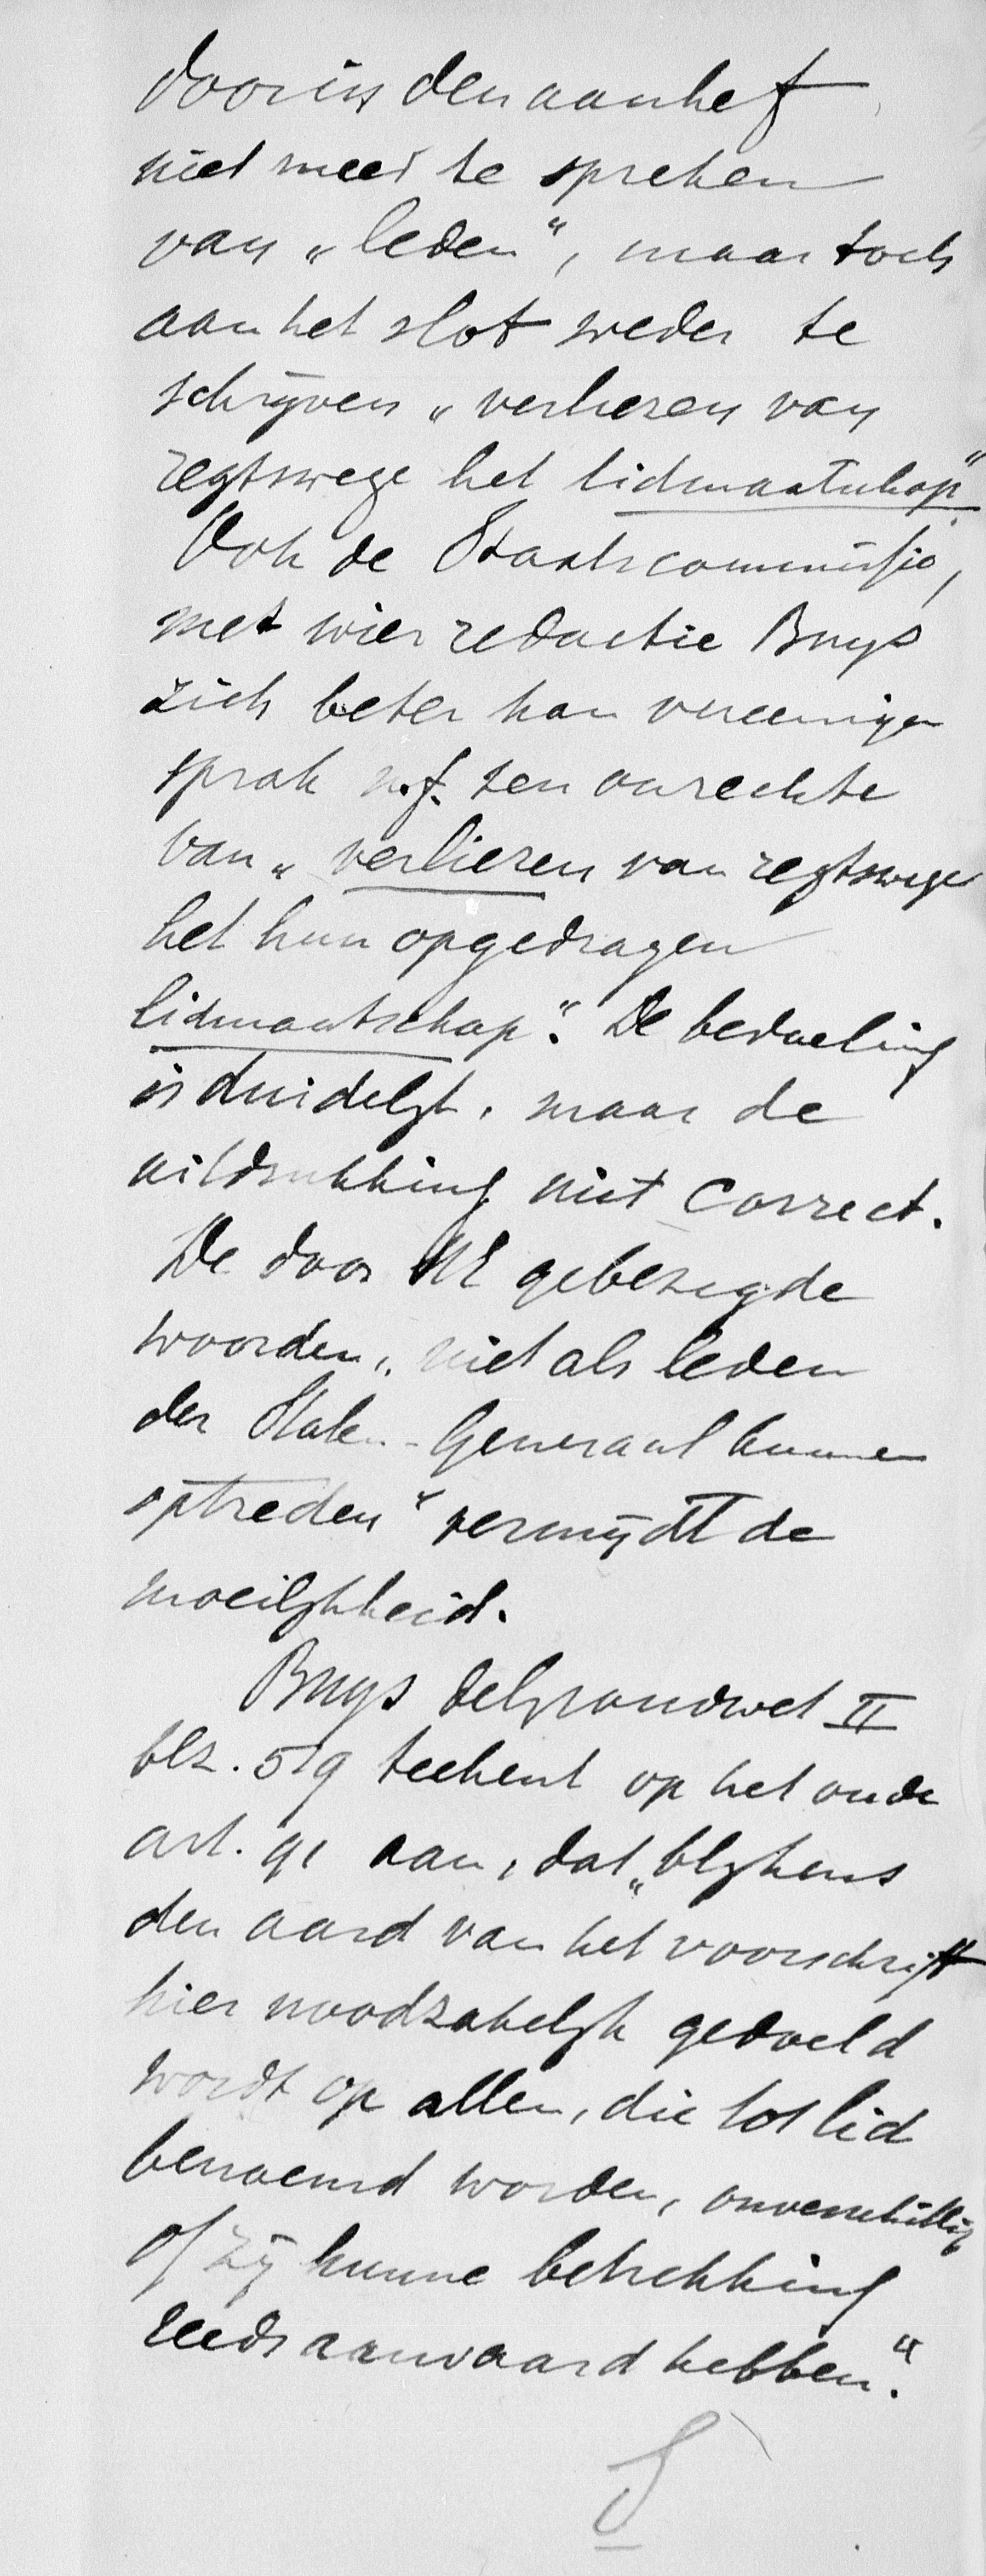 door in den aanhef
niet meer te spreken
van „leden“, maar toch
aan het slot weder te
schrijven „verliezen van
regtswege het lidmaatschap“.
Ook de Staatscommissie,
met wier redactie Buys
zich beter kan vereenigen
sprak m.i. ten onrechte
van „verliezen van regtswege
het hun opgedragen
lidmaatschap“. De bedoeling
is duidelijk, maar de
uitdrukking niet correct.
De door UE gebezigde
woorden „niet als leden
der Staten-Generaal kunnen
optreden“ vermijdt de
moeilijkheid.
Buys de Grondwet II
blz. 519 teekent op het oude
art. 91 aan, dat „blijkens
den aard van het voorschrift
hier noodzakelijk gedoeld
wordt op allen, die tot lid
benoemd worden, onverschillig
of zij hunne betrekking
reeds aanvaard hebben“.